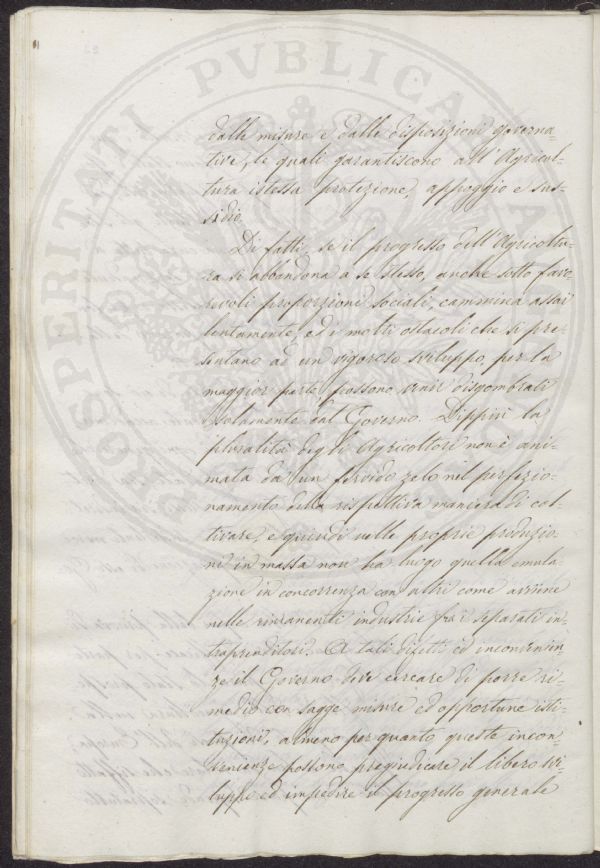 dalle misure e dalle disposizioni governa-
tive, le quali garantiscono all'Agricul-
tura istessa protezione, appoggio e sus-
sidio.
Di fatti, se il progresso dell'Agricoltu-
ra si abbandona a se stesso, anche sotto favo-
revoli proporzioni sociali, cammina assai
lentamente, ed i molti ostacoli che si pre-
sentano ad un vigoroso sviluppo, per la
maggior parte possono venir disgombrati
solamente dal Governo. Dippiù la
pluralità degli Agricoltori non è ani-
mata da un fervido zelo nel perfezio-
namento della rispettiva maniera di col-
tivare, e quindi nelle proprie produzio-
ni in massa non ha luogo quella emula-
zione in concorrenza con altri come avviene
nelle rimanenti industrie fra i separati in-
traprenditori. A tali difetti ed inconvenien-
ze il Governo deve cercare di porre ri-
medio con sagge misure ed opportune isti-
tuzioni, almeno per quanto queste incon-
venienze possono pregiudicare il libero svi-
luppo ed impedire il progresso generale
PROSPERITATI PVBLICAE